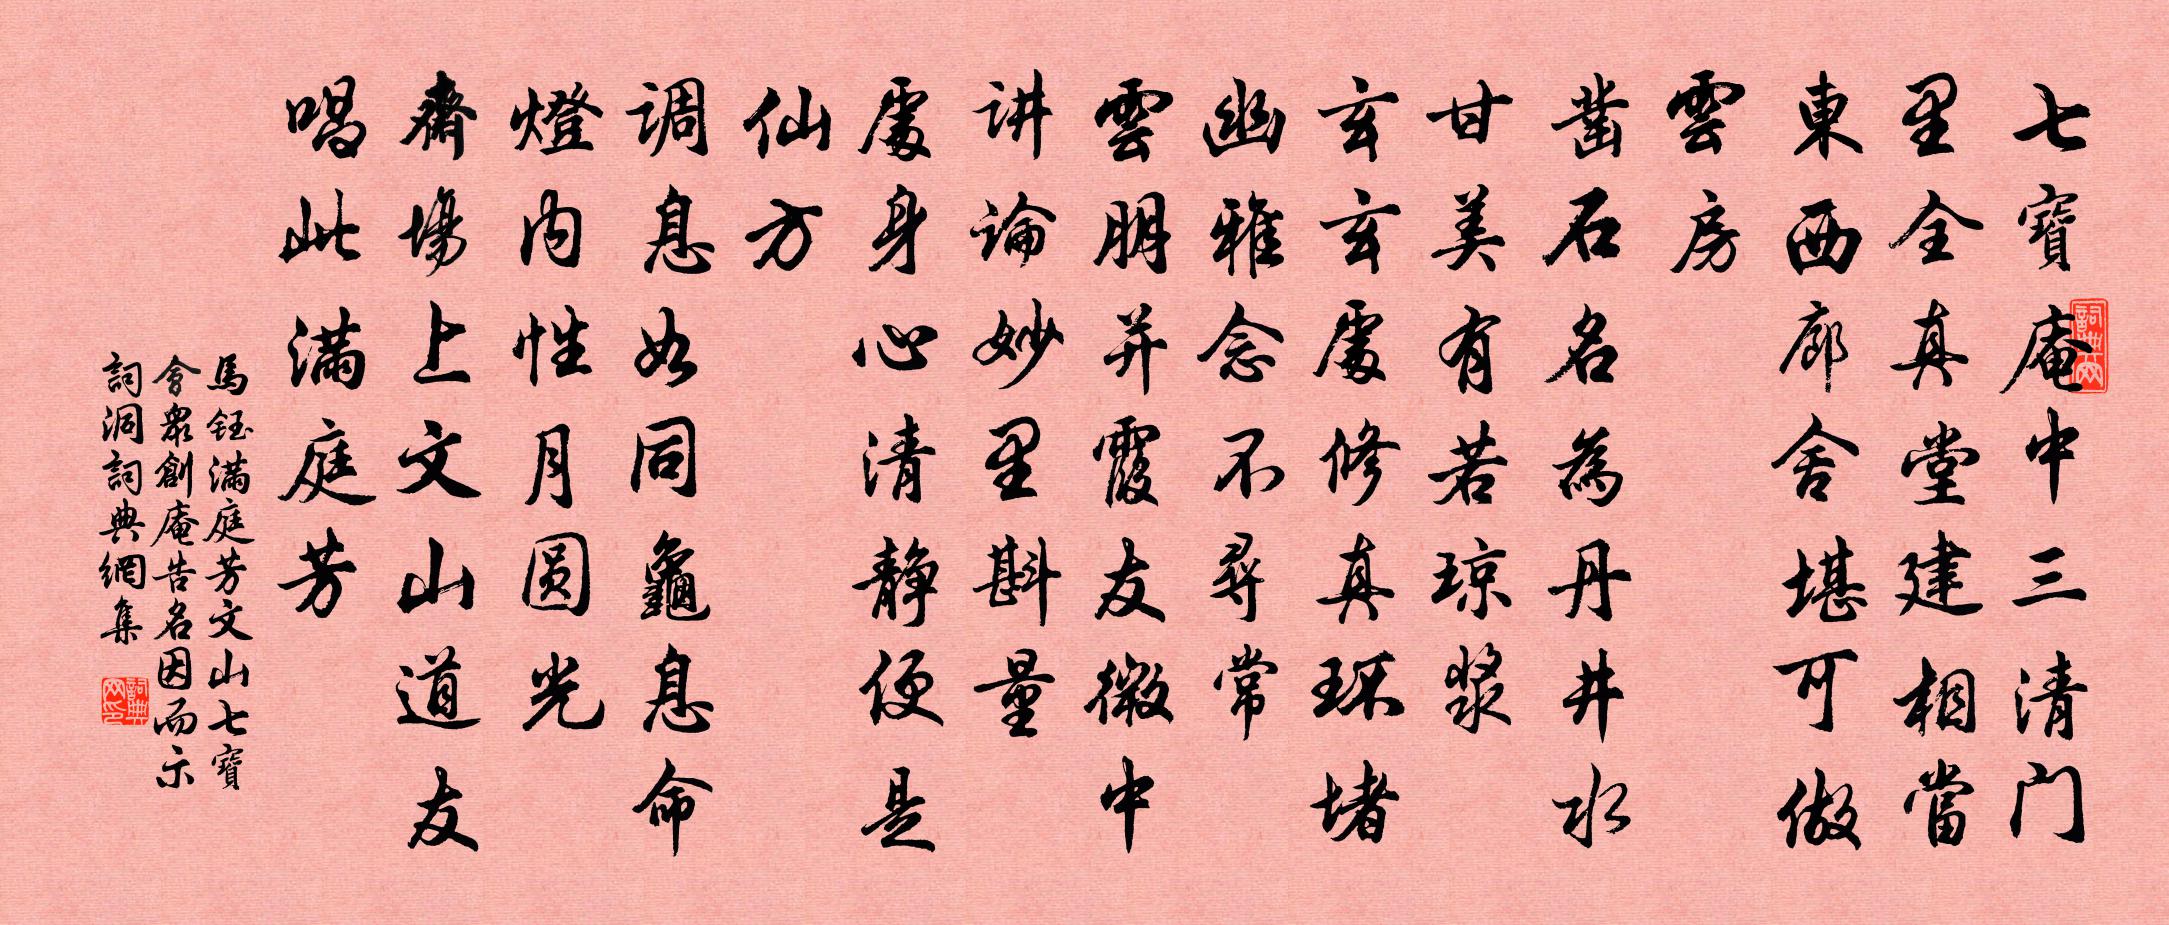 七寶庵中三清门
里全真堂建相當
東西廊舍堪可做
雲房
凿石名為丹井水
甘美有若琼漿
玄玄處修真环堵
幽雅念不尋常
雲朋并霞友微中
讲論妙里斟量
處身心清静便是
仙方
调息如同龜息命
燈内性月圆光
齋場上文山道友
唱此满庭芳
馬鈺满庭芳文山七寶
會衆創庵告名因而示
詞洞詞典網集
詞典网
詞典网印